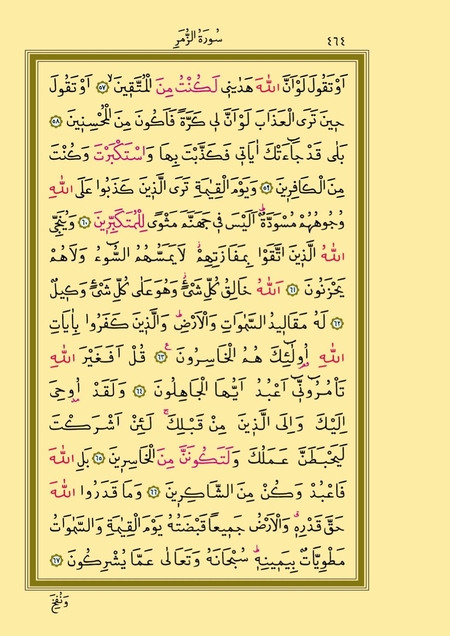 سُورَةُ الزُّمَرِ ٤٦٤
اَوْ تَقُولَ لَوْ اَنَّ اللّٰهَ هَدٰينٖي لَكُنْتُ مِنَ الْمُتَّقٖينَۙ ﴿٥٧﴾ اَوْ تَقُولَ
حٖينَ تَرَى الْعَذَابَ لَوْ اَنَّ لٖي كَرَّةً فَاَكُونَ مِنَ الْمُحْسِنٖينَ ﴿٥٨﴾
بَلٰى قَدْ جَٓاءَتْكَ اٰيَاتٖي فَكَذَّبْتَ بِهَا وَاسْتَكْبَرْتَ وَكُنْتَ
مِنَ الْكَافِرٖينَ ﴿٥٩﴾ وَيَوْمَ الْقِيٰمَةِ تَرَى الَّذٖينَ كَذَبُوا عَلَى اللّٰهِ
وُجُوهُهُمْ مُسْوَدَّةٌؕ اَلَيْسَ فٖي جَهَنَّمَ مَثْوًى لِلْمُتَكَبِّرٖينَ ﴿٦٠﴾ وَيُنَجِّي
اللّٰهُ الَّذٖينَ اتَّقَوْا بِمَفَازَتِهِمْؗ لَا يَمَسُّهُمُ السُّٓوءُ وَلَا هُمْ
يَحْزَنُونَ ﴿٦١﴾ اَللّٰهُ خَالِقُ كُلِّ شَيْءٍؗ وَهُوَ عَلٰى كُلِّ شَيْءٍ وَكٖيلٌ
﴿٦٢﴾ لَهُ مَقَالٖيدُ السَّمٰوَاتِ وَالْاَرْضِؕ وَالَّذٖينَ كَفَرُوا بِاٰيَاتِ
اللّٰهِ اُو۬لٰٓئِكَ هُمُ الْخَاسِرُونَࣖ ﴿٦٣﴾ قُلْ اَفَغَيْرَ اللّٰهِ
تَأْمُرُٓونّٖٓي اَعْبُدُ اَيُّهَا الْجَاهِلُونَ ﴿٦٤﴾ وَلَقَدْ اُو۫حِيَ
اِلَيْكَ وَاِلَى الَّذٖينَ مِنْ قَبْلِكَۚ لَئِنْ اَشْرَكْتَ
لَيَحْبَطَنَّ عَمَلُكَ وَلَتَكُونَنَّ مِنَ الْخَاسِرٖينَ ﴿٦٥﴾ بَلِ اللّٰهَ
فَاعْبُدْ وَكُنْ مِنَ الشَّاكِرٖينَ ﴿٦٦﴾ وَمَا قَدَرُوا اللّٰهَ
حَقَّ قَدْرِهٖۗ وَالْاَرْضُ جَمٖيعاً قَبْضَتُهُ يَوْمَ الْقِيٰمَةِ وَالسَّمٰوَاتُ
مَطْوِيَّاتٌ بِيَمٖينِهٖؕ سُبْحَانَهُ وَتَعَالٰى عَمَّا يُشْرِكُونَ ﴿٦٧﴾
وَنُفِخَ